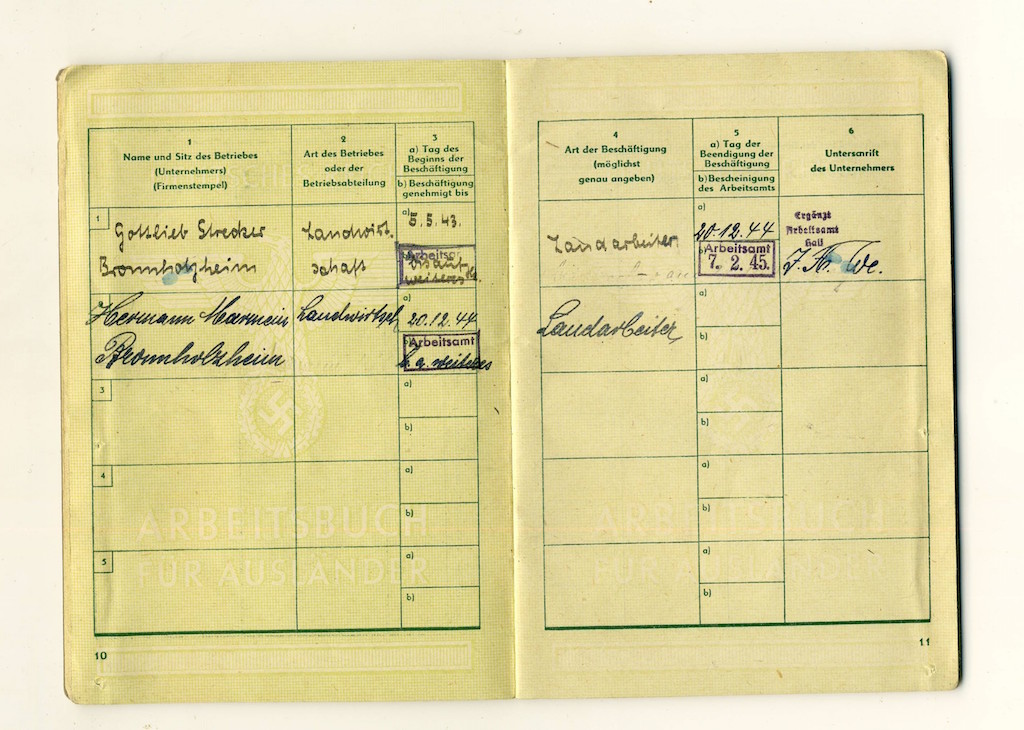 1
Name und Sitz des Betriebes
(Unternehmers)
(Firmenstempel)
2
Art des Betriebes
oder der
Betriebsabteilung
3
a) Tag des
Beginns der
Beschäftigung
b) Beschäftigung
genehmigt bis
1
Gottlieb Strecker
Bronnholzheim
Landwirt.
schaft
a) 5.5.43.
Arbeitsamt
bis auf
weiteres
Hermann
Bronnholzheim
Landwirtsch
a)
20.12.44
b) Arbeitsamt
b. a. weiteres
3
a)
b)
4
a)
b)
5
a)
b)
ARBEITSBUCH
FÜR AUSLÄNDER
10
4
Art der Beschäftigung
(möglichst
genau angeben)
5
a) Tag der
Beendigung der
Beschäftigung
b) Bescheinigung
des Arbeitsamts
6
Unterschrift
des Unternehmers
Landarbeiter
a)
20.12.44
Arbeitsamt
7. 2. 45.
Ergänzt
Arbeitsamt
Hall
J. A. We.
Landarbeiter
a)
b)
a)
b)
a)
b)
a)
b)
ARBEITSBUCH
FÜR AUSLÄNDER
11